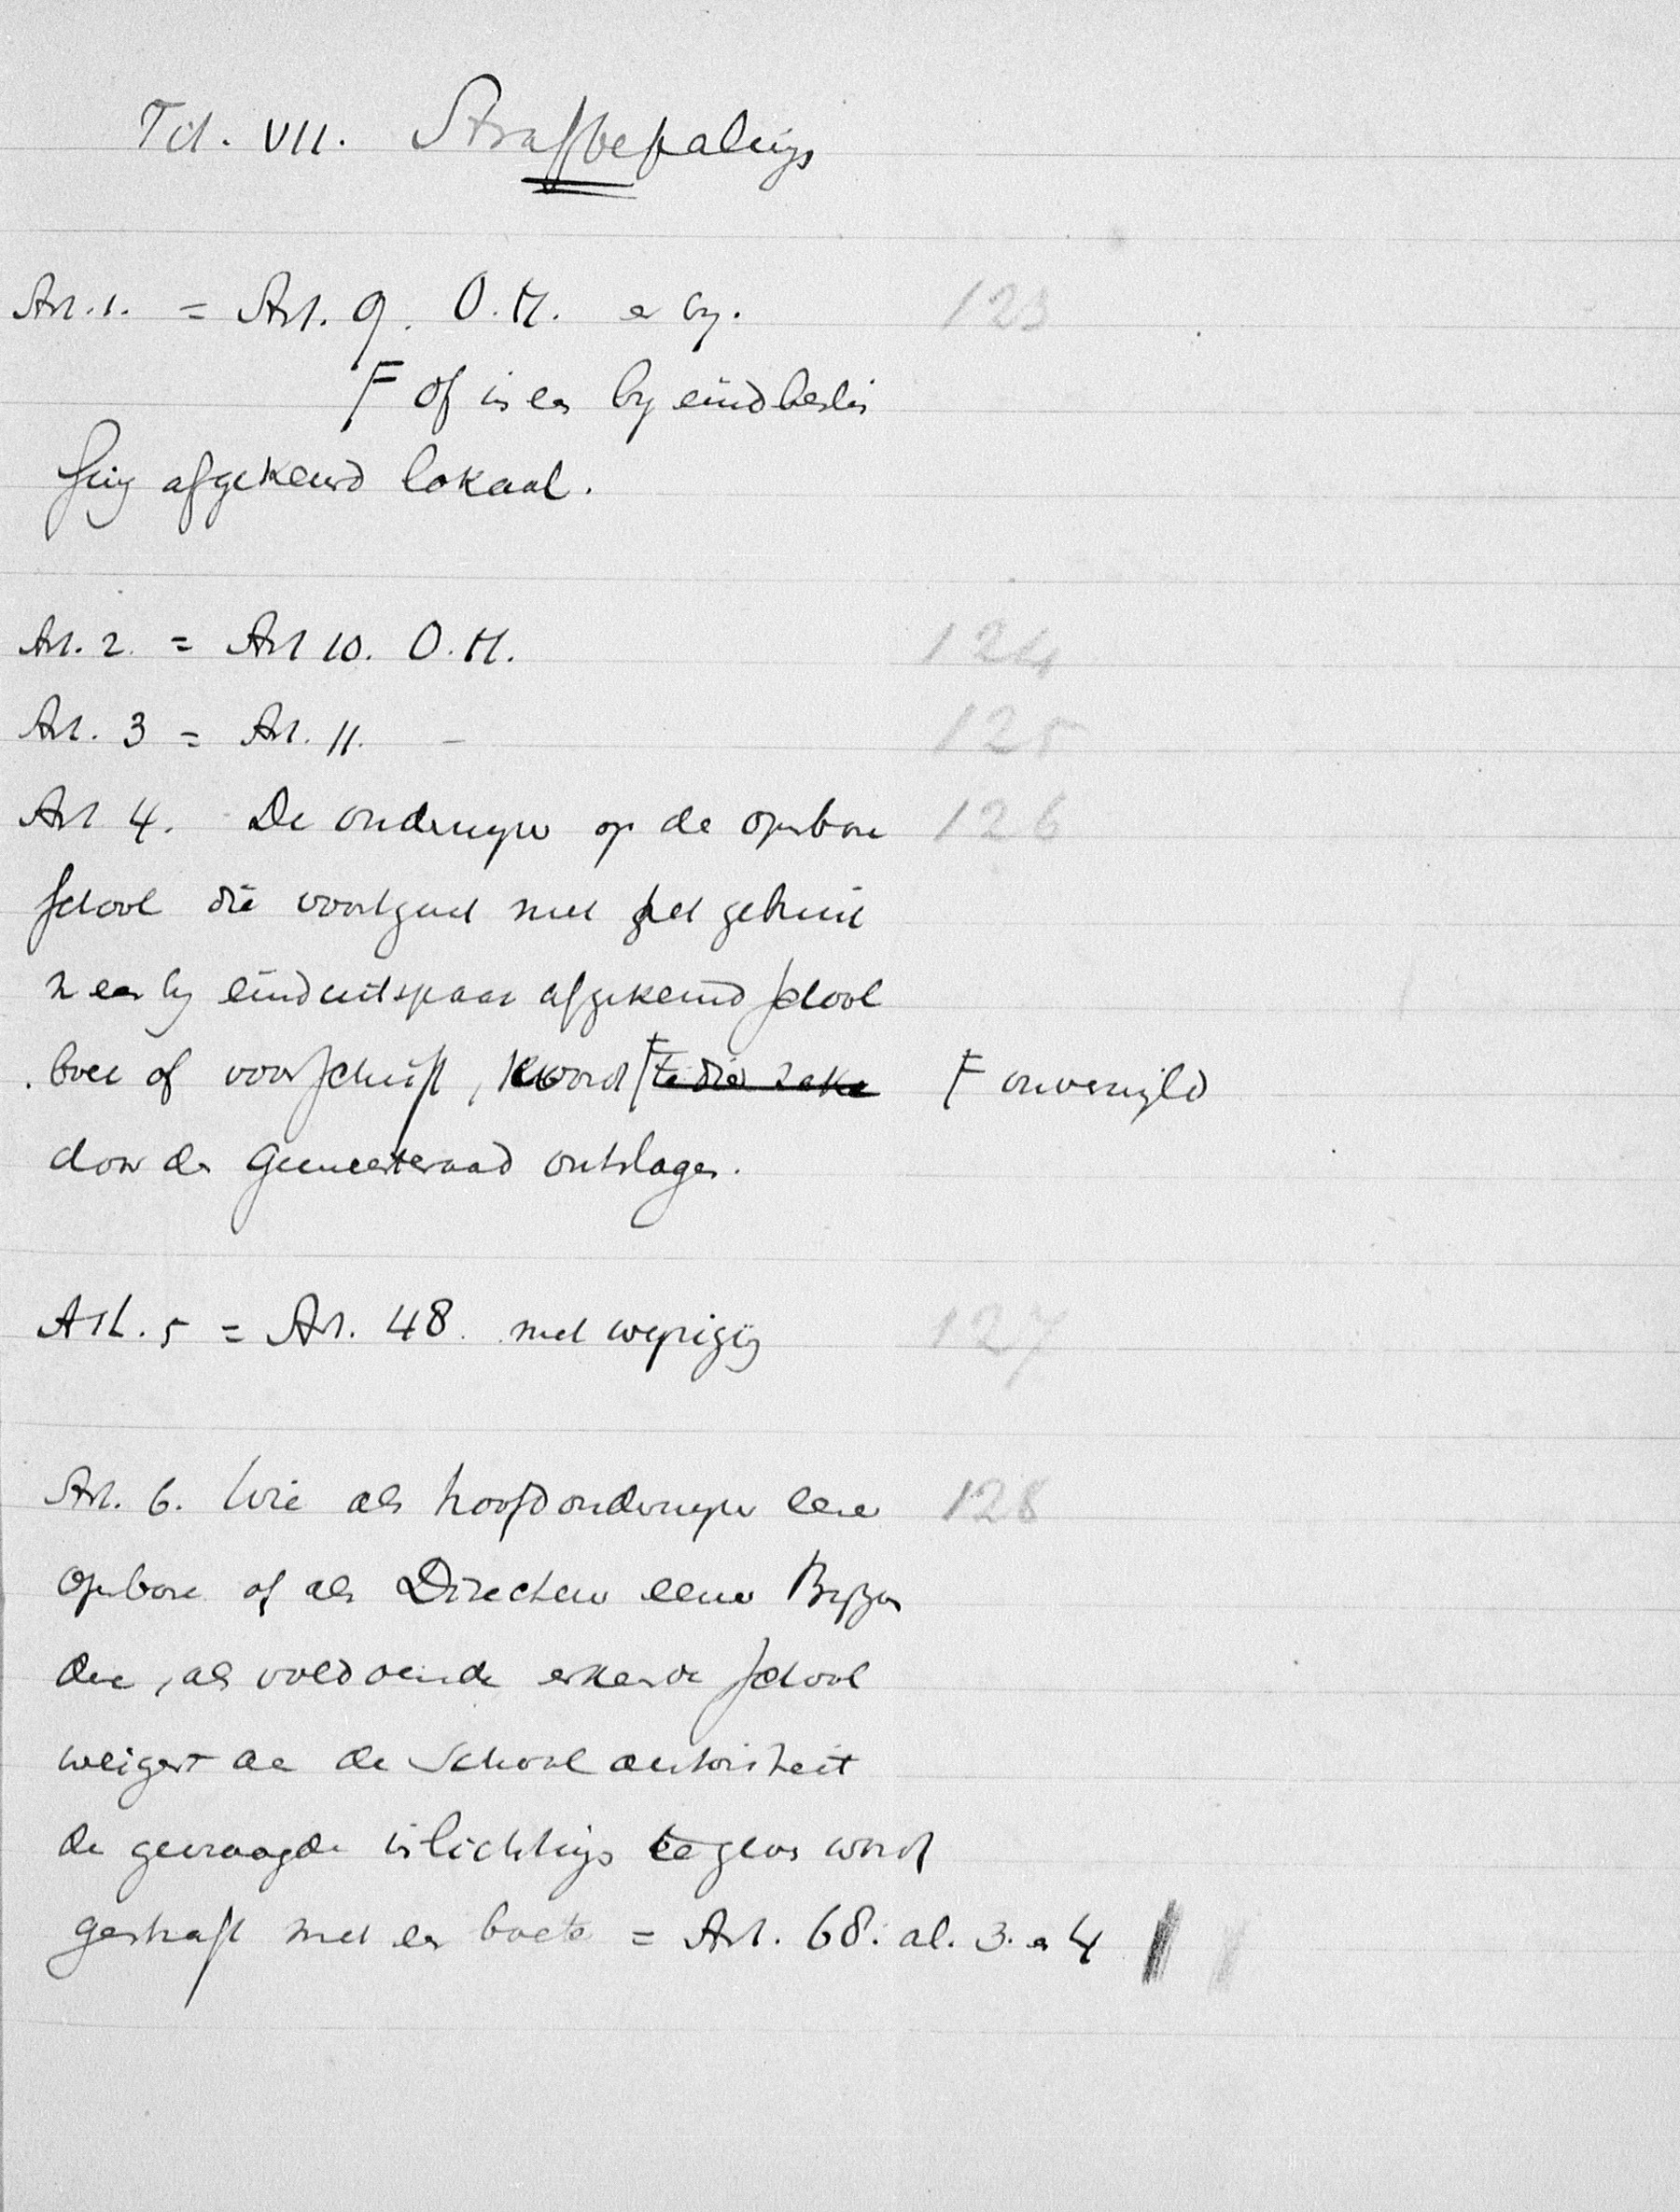 Tit. VII. Strafbepalings
Art. 1. = Art. 9. O.M. e by. 123
F Of in een by eindbeslis
sing afgekeurd lokaal.
Art. 2. = Art 10. O.M. 124
Art. 3 = Art. 11. - 125
Art 4. De onderwyzer op de openbare 126
school die voortgaat met het gebruik
by einduitspraak afgekeurd school
boek of voorschrift, wordt F te dier zake F onverwijld
door de Gemeenteraad ontslagen.
Art. 5 = Art. 48. met wyziging 127
Art. 6. Wie als hoofdonderwyzer eener 128
openbare of als Directeur eener Byzon
dere, als voldoende erkende school
weigert aan de School autoriteit
de gevraagde inlichtings te geven wordt
gestraft met een boete = Art. 68. al. 3. e 4